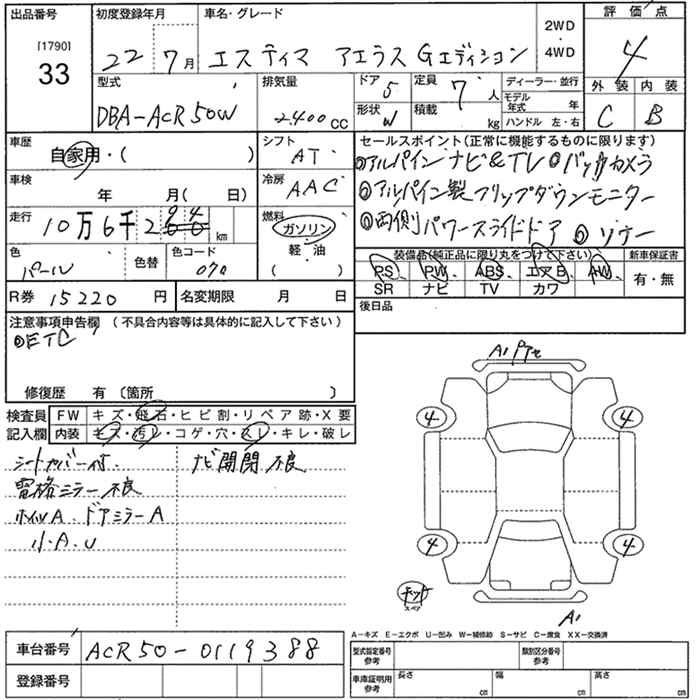 出品番号
[1790]
33
初度登録年月
22 7月
車名・グレード
エスティマ アエラス Gエディション
2WD
・
4WD
評価点
4
外装 内装
C B
型式
DBA-ACR50W
排気量
2.400cc
ドア 5
形状 W
定員 7人
積載 kg
ディーラー・並行
モデル年式 年
ハンドル 左・右
車歴
自家用・( )
シフト
AT
車検
年 月( 日)
冷房
AAC
走行
10万6千2 km
燃料
ガソリン
軽・油
( )
色
パール
色替
色コード
070
R券 15220 円
名変期限 月 日
セールスポイント(正常に機能するものに限ります)
◎アルパイン ナビ&TV ◎バックカメラ
◎アルパイン製フリップダウンモニター
◎両側パワースライドドア ◎ソナー
装備品(純正品に限り丸をつけて下さい)
PS PW ABS エアB AW
SR ナビ TV カワ
新車保証書
有・無
後日品
注意事項申告欄 (不具合内容等は具体的に記入して下さい)
◎ETC
修復歴 有 〔箇所 〕
検査員
記入欄
FW キズ・飛石・ヒビ割・リペア跡・X要
内装 キズ・汚レ・コゲ・穴・スレ・キレ・破レ
シートカバー付. ナビ開閉不良
電格ミラー不良
ホイルA. ドアミラーA
小.A.U
A1
4 4
4 4
キット
スペア
A1
A-キズ E-エクボ U-凹み W-補修跡 S-サビ C-腐食 XX-交換済
車台番号 ACR50-0119388
登録番号
型式指定番号
参考
類別区分番号
参考
車庫証明用
参考
長さ cm
幅 cm
高さ cm